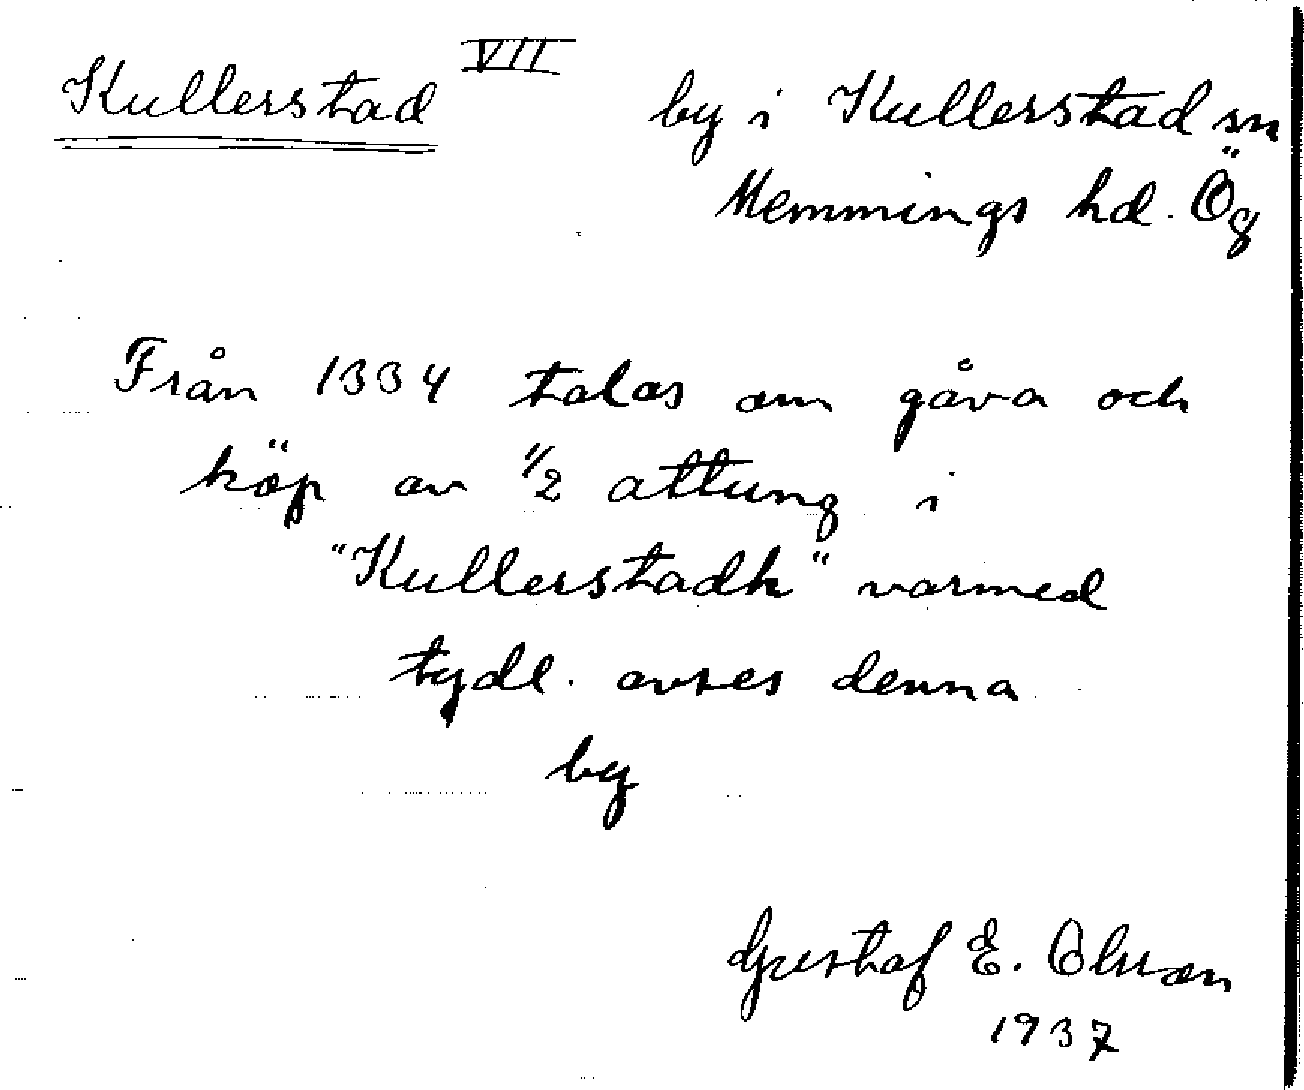 Kullerstad VII by i Kullerstad sn
Memmings hd. Ög
Från 1334 talas om gåva och
köp av 1/2 attung i
"Kullerstadh" varmed
tydl. avses denna
by
Gustaf E. Olsson
1937